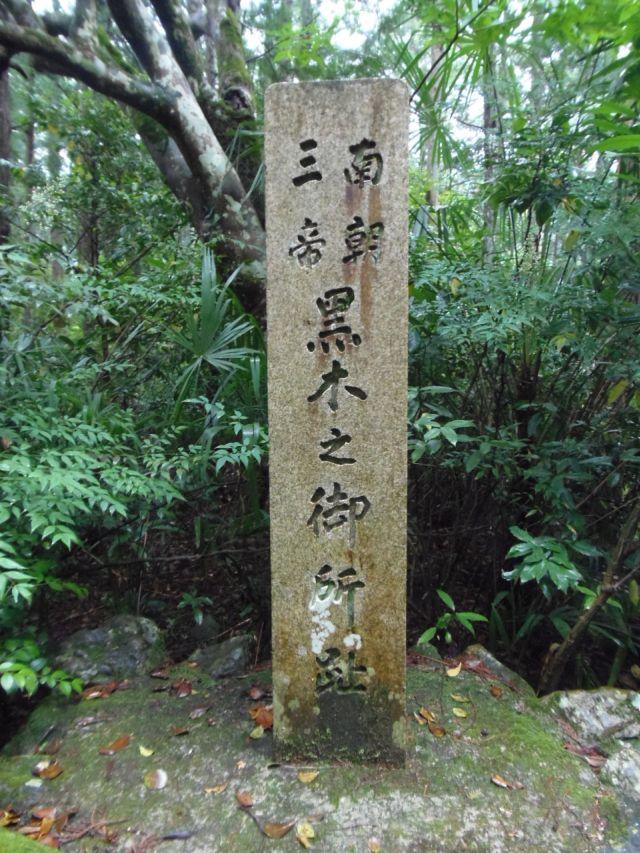 南朝
三帝
黒木之御所趾